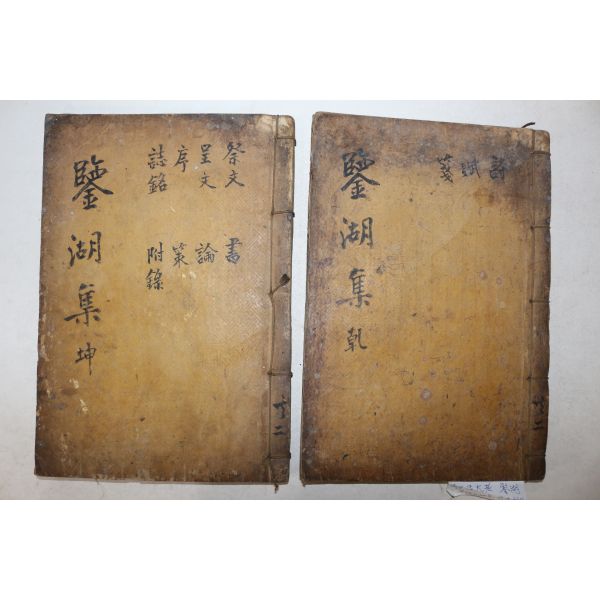 鑒湖集 乾
詩
賦
箋
共二
鑒湖集 坤
祭文 書
呈文 論
序 策
誌銘 附錄
共二